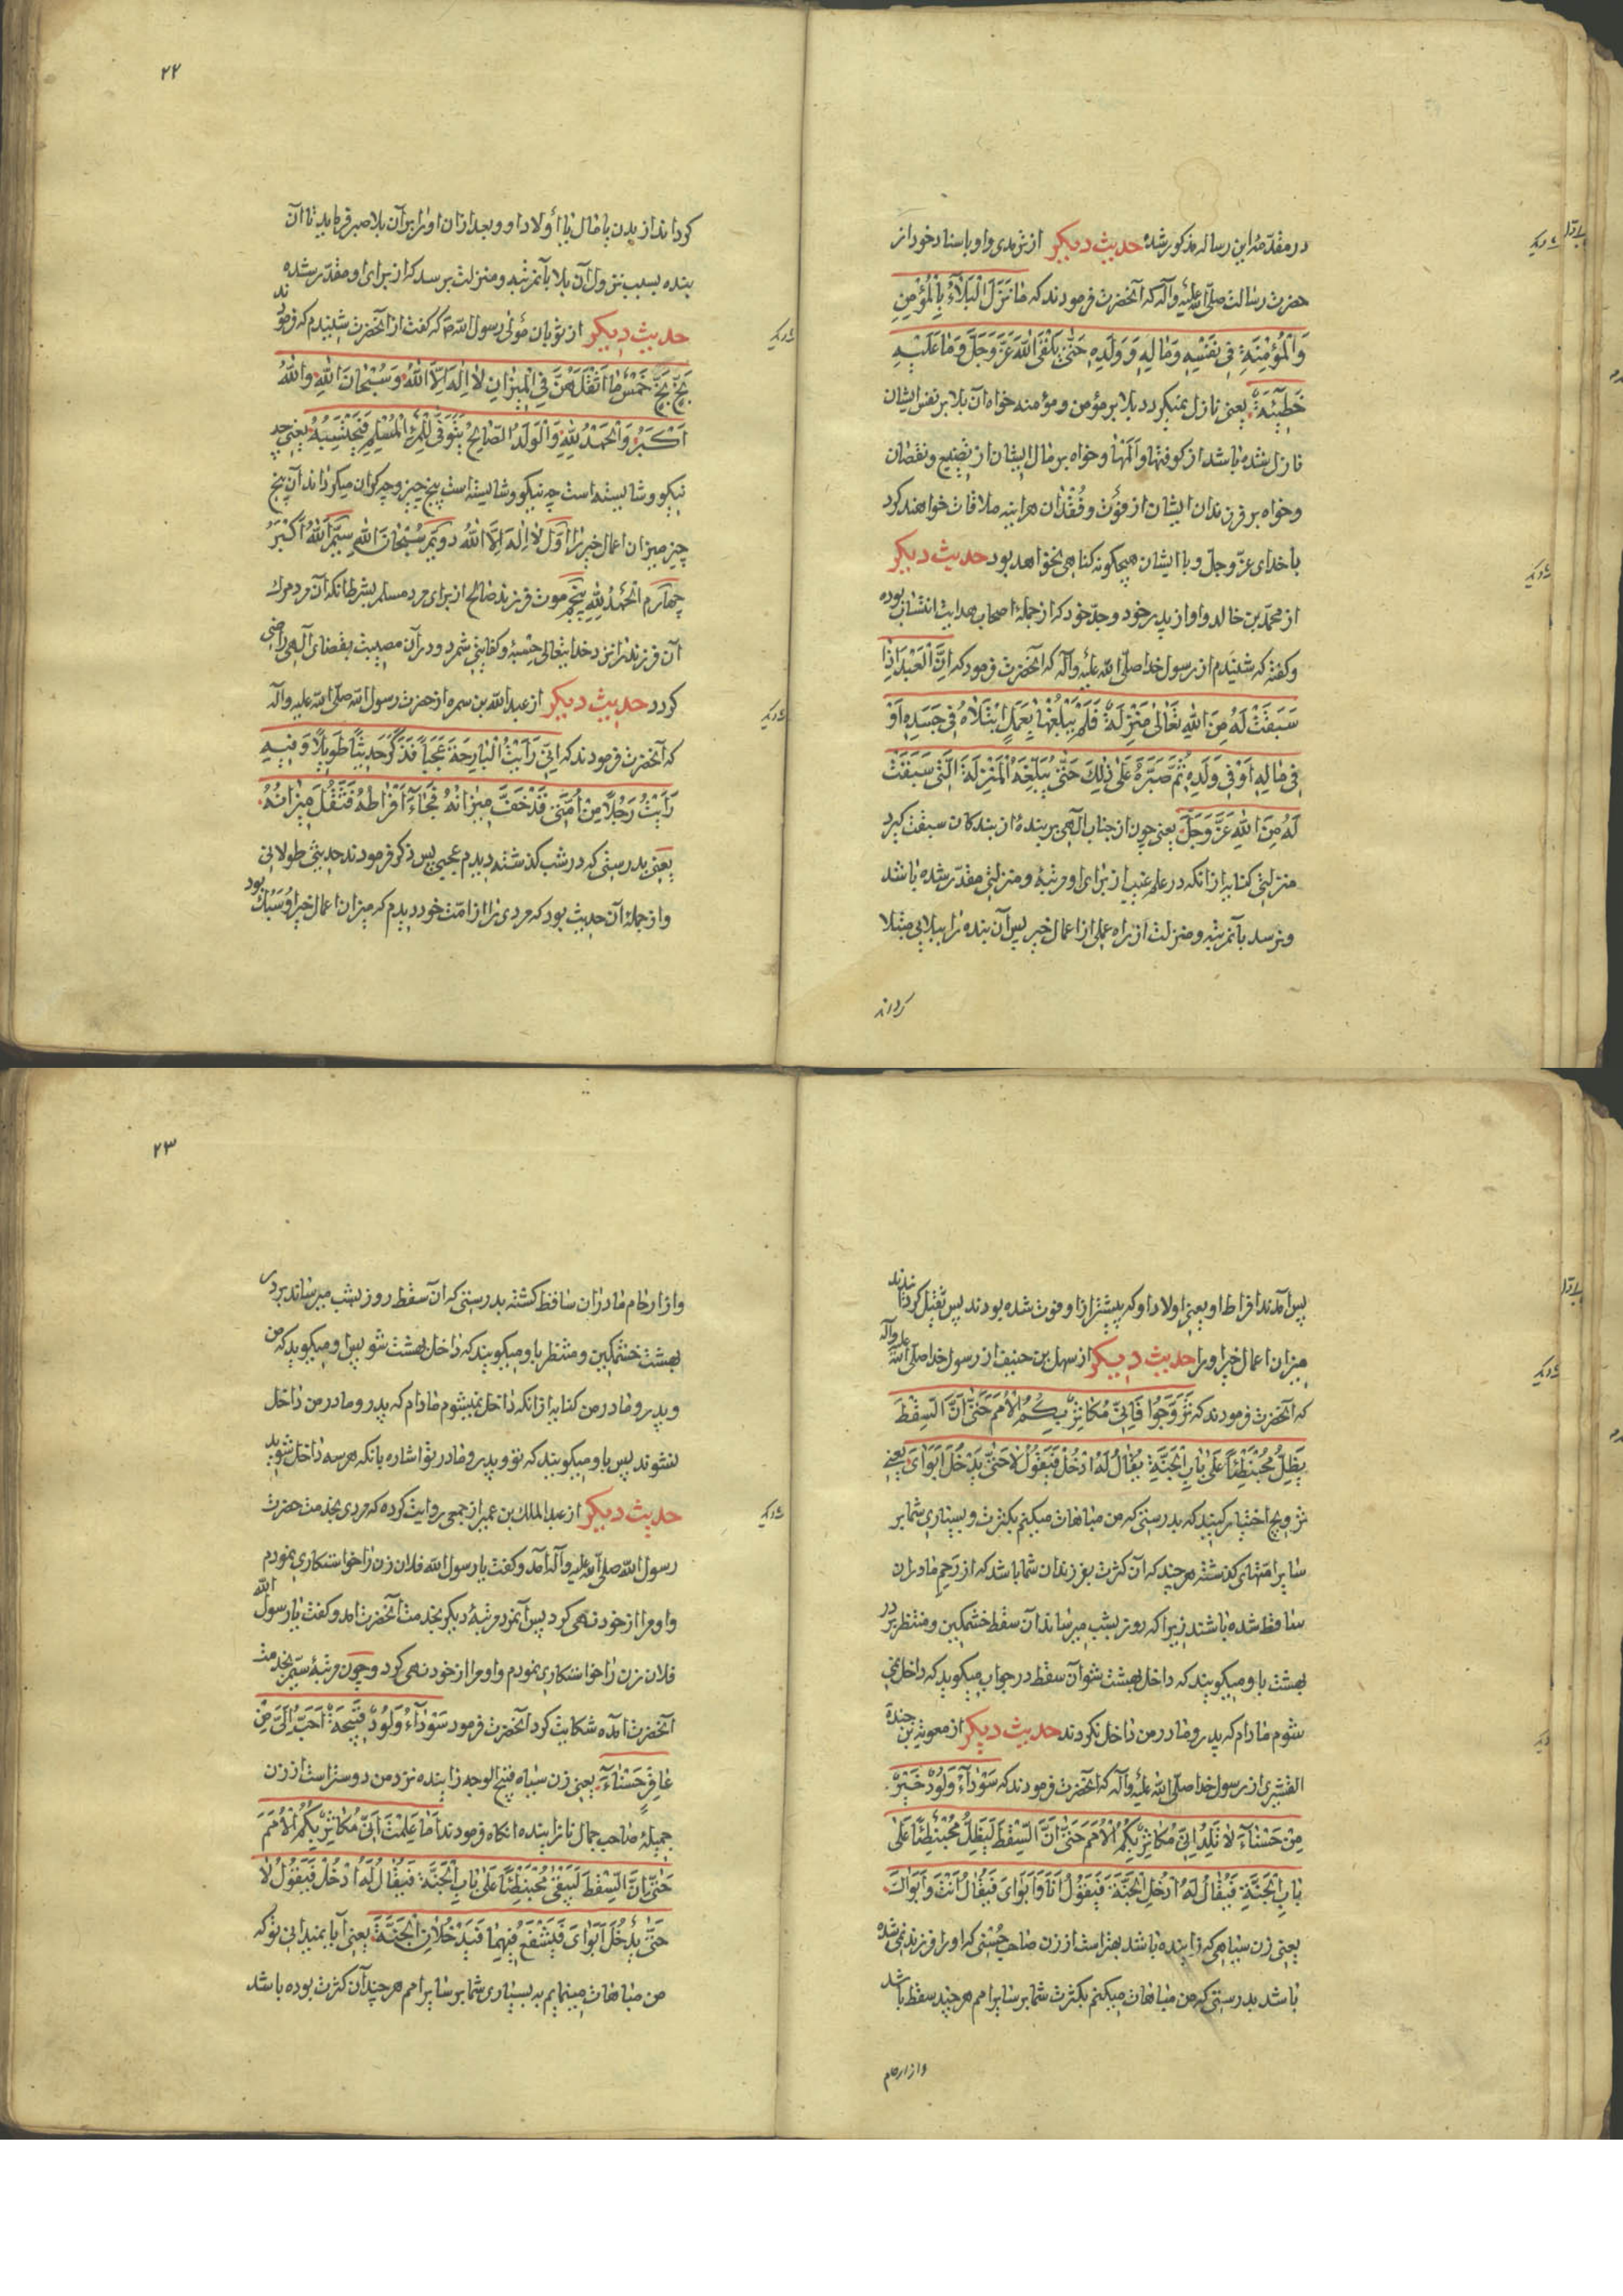 در مقدّمهٔ این رساله مذکور شده حدیث دیگر از ترمدی و او باسناد خود از
حضرت رسالت صلّی الله علیه وآله که آنحضرت فرمودند که مَا نَزَلَ الْبَلَآءُ بِالْمُؤْمِنِ
وَالْمُؤْمِنَةِ فِی نَفْسِهِ وَمَالِهِ وَوَلَدِهِ حَتّیٰ یَلْقَی اللهَ عَزَّ وَجَلَّ وَمَا عَلَیْهِ
خَطِیئَةٌ یعنی نازل نمیگردد بلا بر مؤمن و مؤمنه خواه آن بلا بر نفس ایشان
نازل شده باشد از کوفتها و اَلَمْها و خواه بر مال ایشان از تضییع و نقصان
و خواه بر فرزندان ایشان از فَوْت و فُقْدان هر اینه ملاقات خواهند کرد
با خدای عزّ وجلّ و با ایشان هیچگونه کناهی نخواهد بود حدیث دیگر
از محمّد بن خالد و او از پدر خود و جدّ خود که از جملهٔ اصحاب هدایت انتساب بوده
و کفته که شنیدم از رسول خدا صلّی الله علیه وآله که آنحضرت فرمود که اِنَّ الْعَبْدَ اِذَا
سَبَقَتْ لَهُ مِنَ اللهِ تَعَالیٰ مَنْزِلَةٌ فَلَمْ یَبْلُغْهَا بِعَمَلٍ اِبْتَلَاهُ فِی جَسَدِهِ اَوْ
فِی مَالِهِ اَوْ فِی وَلَدِهِ ثُمَّ صَبَّرَهُ عَلیٰ ذٰلِکَ حَتّیٰ یُبَلِّغَهُ الْمَنْزِلَةَ الَّتِی سَبَقَتْ
لَهُ مِنَ اللهِ عَزَّ وَجَلَّ یعنی چون از جناب آلهی بر بندهٔ از بندکان سبقت کیرد
منزلتی کنایه از انکه در علم غیب از برای او مرتبهٔ و منزلتی مقدّر شده باشد
و نرسد بآنمرتبه و منزلت از راه عملی از اعمال خیر پس آن بنده را ببلایی مبتلا
کرداند
۲۲
کرداند از بدن یا مال یا أولاد او و بعد از ان او را بر آن بلا صبر فرماید تا آن
بنده بسبب نزول آن بلا بآنمرتبه و منزلت برسد که از برای او مقدّر شده
حدیث دیگر از ثوبان مولی رسول الله ص که کفت از آنحضرت شنیدم که فرمودند
بَخٍّ بَخٍّ خَمْسٌ مَا اَثْقَلَهُنَّ فِی الْمِیزَانِ لَا اِلٰهَ اِلَّا اللهُ وَسُبْحَانَ اللهِ وَاللهُ
اَکْبَرُ وَالْحَمْدُ لِلّٰهِ وَالْوَلَدُ الصَّالِحُ یُتَوَفّیٰ لِلْمَرْءِ الْمُسْلِمِ فَیَحْتَسِبُهُ یعنی چه
نیکو و شایسته است چه نیکو و شایسته است پنج چیز و چه کران میکرداند آن پنج
چیز میزان اعمال خیر را اوّل لَا اِلٰهَ اِلَّا اللهُ دویّم سُبْحَانَ اللهِ سیّم اَللهُ اَکْبَرُ
چهارم اَلْحَمْدُ لِلّٰهِ پنجم موت فرزند صالح از برای مرد مسلم بشرط انکه آن مرد مرک
آن فرزند را نزد خدایتعالی حِسْبهٔ و کفایتی شمرد و در آن مصیبت بقضای آلهی راضی
کردد حدیث دیگر از عبدالله بن سمره از حضرت رسول الله صلّی الله علیه وآله
که آنحضرت فرمودند که اِنّی رَأَیْتُ الْبَارِحَةَ عَجَباً فَذَکَرَ حَدِیثاً طَوِیلاً وَفِیهِ
رَأَیْتُ رَجُلاً مِنْ اُمَّتِی قَدْ خَفَّ مِیزَانُهُ فَجَاءَ اَفْرَاطُهُ فَثَقُلَ مِیزَانُهُ
یعنی بدرستی که در شب کذشته دیدم عجبی پس ذکر فرمودند حدیثی طولانی
و از جملهٔ آن حدیث بود که مردی را از امّت خود دیدم که میزان اعمال خیر او سَبُک بود
پس آمدند افراط او یعنی اولاد او که پیشتر از او فوت شده بودند پس ثقیل کردانیدند
میزان اعمال خیر او را حدیث دیگر از سهل بن حنیف از رسول خدا صلّی الله علیه وآله
که آنحضرت فرمودند که تَزَوَّجُوا فَاِنّی مُکَاثِرٌ بِکُمُ الْاُمَمَ حَتّیٰ اَنَّ السِّقْطَ
یَظِلُّ مُحْبَنْطِئاً عَلیٰ بَابِ الْجَنَّةِ یُقَالُ لَهُ ادْخُلْ فَیَقُولُ لَا حَتّیٰ یَدْخُلَ اَبَوَایَ یعنی
تزویج اختیار کنید که بدرستی که من مباهات میکنم بکثرت و بسیاری شما بر
سایر امّتهای کذشته هرچند که آن کثرت بفرزندان شما باشد که از رَحِم مادران
ساقط شده باشند زیرا که روز بشب میرساند آن سقط خشمکین و منتظر بر در
بهشت باو میکویند که داخل بهشت شو آن سقط در جواب میکوید که داخل نمی
شوم مادام که پدر و مادر من داخل نکردند حدیث دیگر از معویة بن حیدة
القشیری از رسول خدا صلّی الله علیه وآله که آنحضرت فرمودند که سَوْدَآءُ وَلُودٌ خَیْرٌ
مِنْ حَسْنَآءَ لَا تَلِدُ اِنّی مُکَاثِرٌ بِکُمُ الْاُمَمَ حَتّیٰ اَنَّ السِّقْطَ لَیَظِلُّ مُحْبَنْطِئاً عَلیٰ
بَابِ الْجَنَّةِ فَیُقَالُ لَهُ ادْخُلِ الْجَنَّةَ فَیَقُولُ اَنَا وَاَبَوَایَ فَیُقَالُ اَنْتَ وَاَبَوَاکَ
یعنی زن سیاهی که زاینده باشد بهتر است از زن صاحب حُسْنی که او را فرزند نمی شده
باشد بدرستی که من مباهات میکنم بکثرت شما بر سایر امم هرچند سقط باشد
و از ارحام
۲۳
و از ارحام مادران ساقط کشته بدرستی که آن سقط روز بشب میرساند بر در
بهشت خشمکین و منتظر باو میکویند که داخل بهشت شو پس او میکوید که من
و پدر و مادر من کنایه از انکه داخل نمیشوم مادام که پدر و مادر من داخل
نشوند پس باو میکویند که تو و پدر و مادر تو اشاره بانکه هر سه داخل شوید
حدیث دیگر از عبدالملک بن عمیر از جمعی روایت کرده که مردی بخدمت حضرت
رسول الله صلّی الله علیه وآله آمد و کفت یا رسول الله فلان زن را خواستکاری نمودم
و او مرا از خود نهی کرد پس آنمرد مرتبهٔ دیگر بخدمت آنحضرت امد و کفت یا رسول الله
فلان زن را خواستکاری نمودم و او مرا از خود نهی کرد و چون مرتبهٔ سیّم بخدمت
آنحضرت آمده شکایت کرد آنحضرت فرمود سَوْدَآءُ وَلُودٌ قَبِیحَةٌ اَحَبُّ اِلَیَّ مِنْ
عَاقِرٍ حَسْنَآءَ یعنی زن سیاه قبیح الوجه زاینده نزد من دوستر است از زن
جمیلهٔ صاحب جمال نازاینده انکاه فرمودند اَمَا عَلِمْتَ اَنّی مُکَاثِرٌ بِکُمُ الْاُمَمَ
حَتّیٰ اَنَّ السِّقْطَ لَیَبْقیٰ مُحْبَنْطِئاً عَلیٰ بَابِ الْجَنَّةِ فَیُقَالُ لَهُ ادْخُلْ فَیَقُولُ لَا
حَتّیٰ یَدْخُلَ اَبَوَایَ فَیَشْفَعُ فِیهِمَا فَیَدْخُلَانِ الْجَنَّةَ یعنی آیا نمیدانی تو که
من مباهات مینمایم به بسیاری شما بر سایر امم هرچند آن کثرت بوده باشد